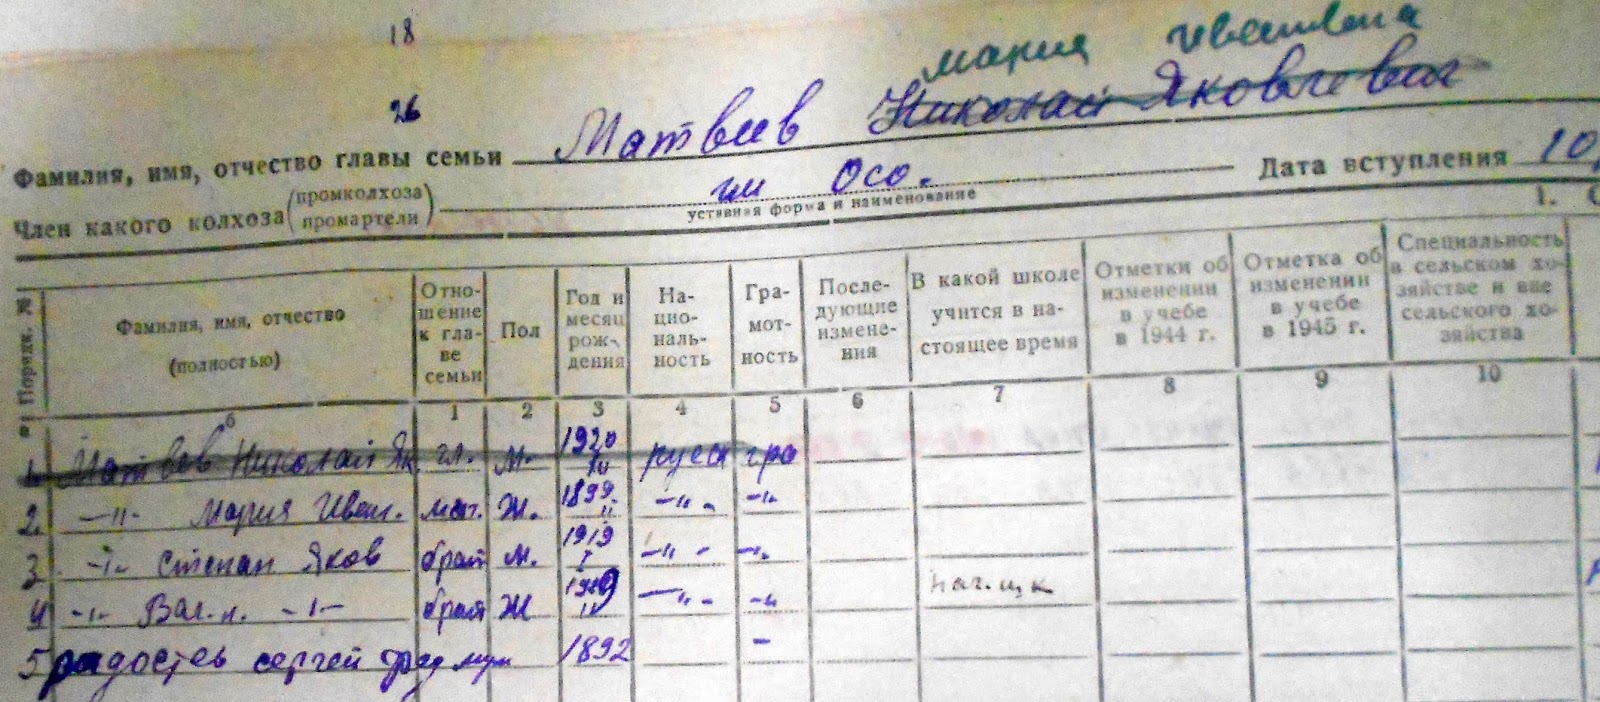 18
мария Ивановна
26
Фамилия, имя, отчество главы семьи Матвеев Николай Яковлевич
Член какого колхоза (промколхоза промартели) им Осо. Дата вступления 10,
уставная форма и наименование
1. С
№ Порядк. Фамилия, имя, отчество (полностью) Отно-шение к гла-ве семьи Пол Год и месяц рож-дения На-цио-наль-ность Гра-мот-ность После-дующие измене-ния В какой школе учится в на-стоящее время Отметки об изменении в учебе в 1944 г. Отметка об изменении в учебе в 1945 г. Специальность в сельском хо-зяйстве и вне сельского хо-зяйства
б 1 2 3 4 5 6 7 8 9 10
1 Матвеев Николай Як. гл. м. 1920 IV русск гра
2. —"— Мария Иван. мат. Ж. 1899 II —"— —"—
3 —"— Степан Яков брат м. 1919 I —"— —"—
4 —"— —"— брат Ж II —"— —"— нач. шк
5 сергей 1892 —